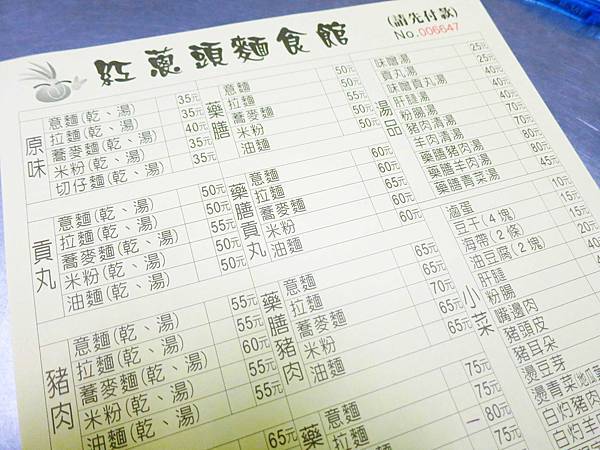 紅蔥頭麵食館
(請先付款)
No.006647
原味
意麵(乾、湯) 35元
拉麵(乾、湯) 35元
蕎麥麵(乾、湯) 40元
米粉(乾、湯) 35元
切仔麵(乾、湯) 35元
貢丸
意麵(乾、湯) 50元
拉麵(乾、湯) 50元
蕎麥麵(乾、湯) 55元
米粉(乾、湯) 50元
油麵(乾、湯) 50元
豬肉
意麵(乾、湯) 55元
拉麵(乾、湯) 55元
蕎麥麵(乾、湯) 60元
米粉(乾、湯) 55元
油麵(乾、湯) 55元
65元
藥膳
意麵 50元
拉麵 50元
蕎麥麵 55元
米粉 50元
油麵 50元
藥膳貢丸
意麵 60元
拉麵 60元
蕎麥麵 65元
米粉 60元
油麵 60元
藥膳豬肉
意麵 65元
拉麵 65元
蕎麥麵 70元
米粉 65元
油麵 65元
藥
意麵 75元
拉麵 75元
80元
75元
湯品
味噌湯 25元
貢丸湯 25元
味噌貢丸湯 40元
肝腱湯 40元
粉腸湯 40元
豬肉清湯
羊肉清湯
藥膳豬肉湯
藥膳羊肉湯 80元
藥膳青菜湯 45元
小菜
滷蛋 10元
豆干(4塊) 15元
海帶(2條) 15元
油豆腐(2塊) 20元
肝腱
粉腸
嘴邊肉
豬頭皮
豬耳朵
燙豆芽
燙青菜(地瓜
白灼豬肉
白灼羊